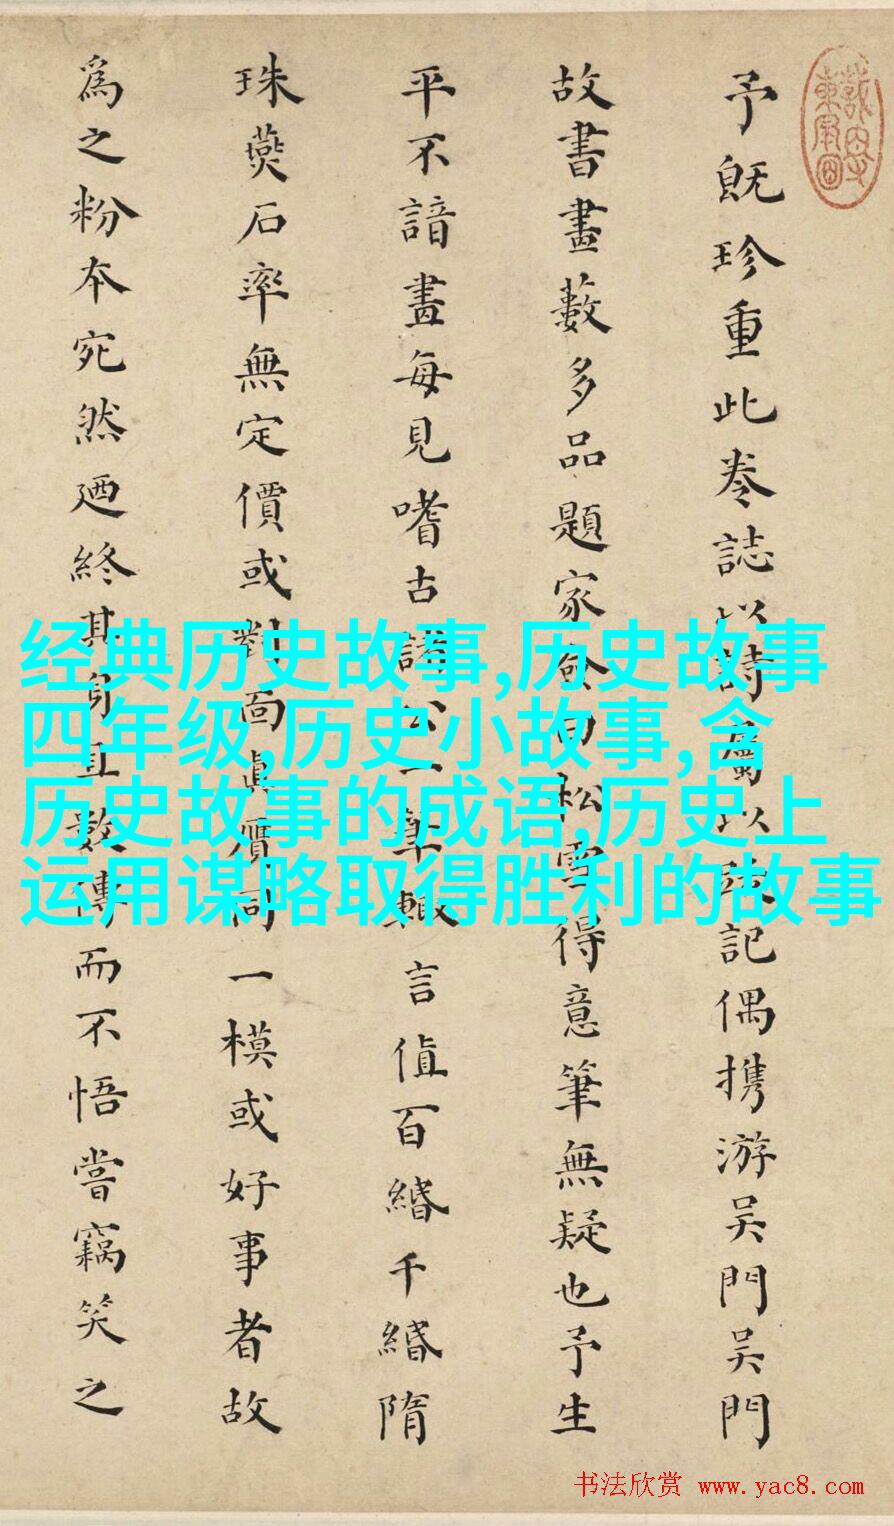 予既珍重此卷誌以詩屬以跋記偶携游吴門吴門
故書畫藪多品題家僉曰松雪得意筆無疑也予生
平不諳畫每見嗜古諸公一筆輙言值百緡千緡隋
珠燕石率無定價或對面眞贋同一模或好事者故
爲之粉本宛然廼終其身且數傳而不悟嘗竊笑之
经典历史故事,历史故事
四年级,历史小故事,含
历史故事的成语,历史上
运用谋略取得胜利的故事
书法欣赏 www.yac8.com